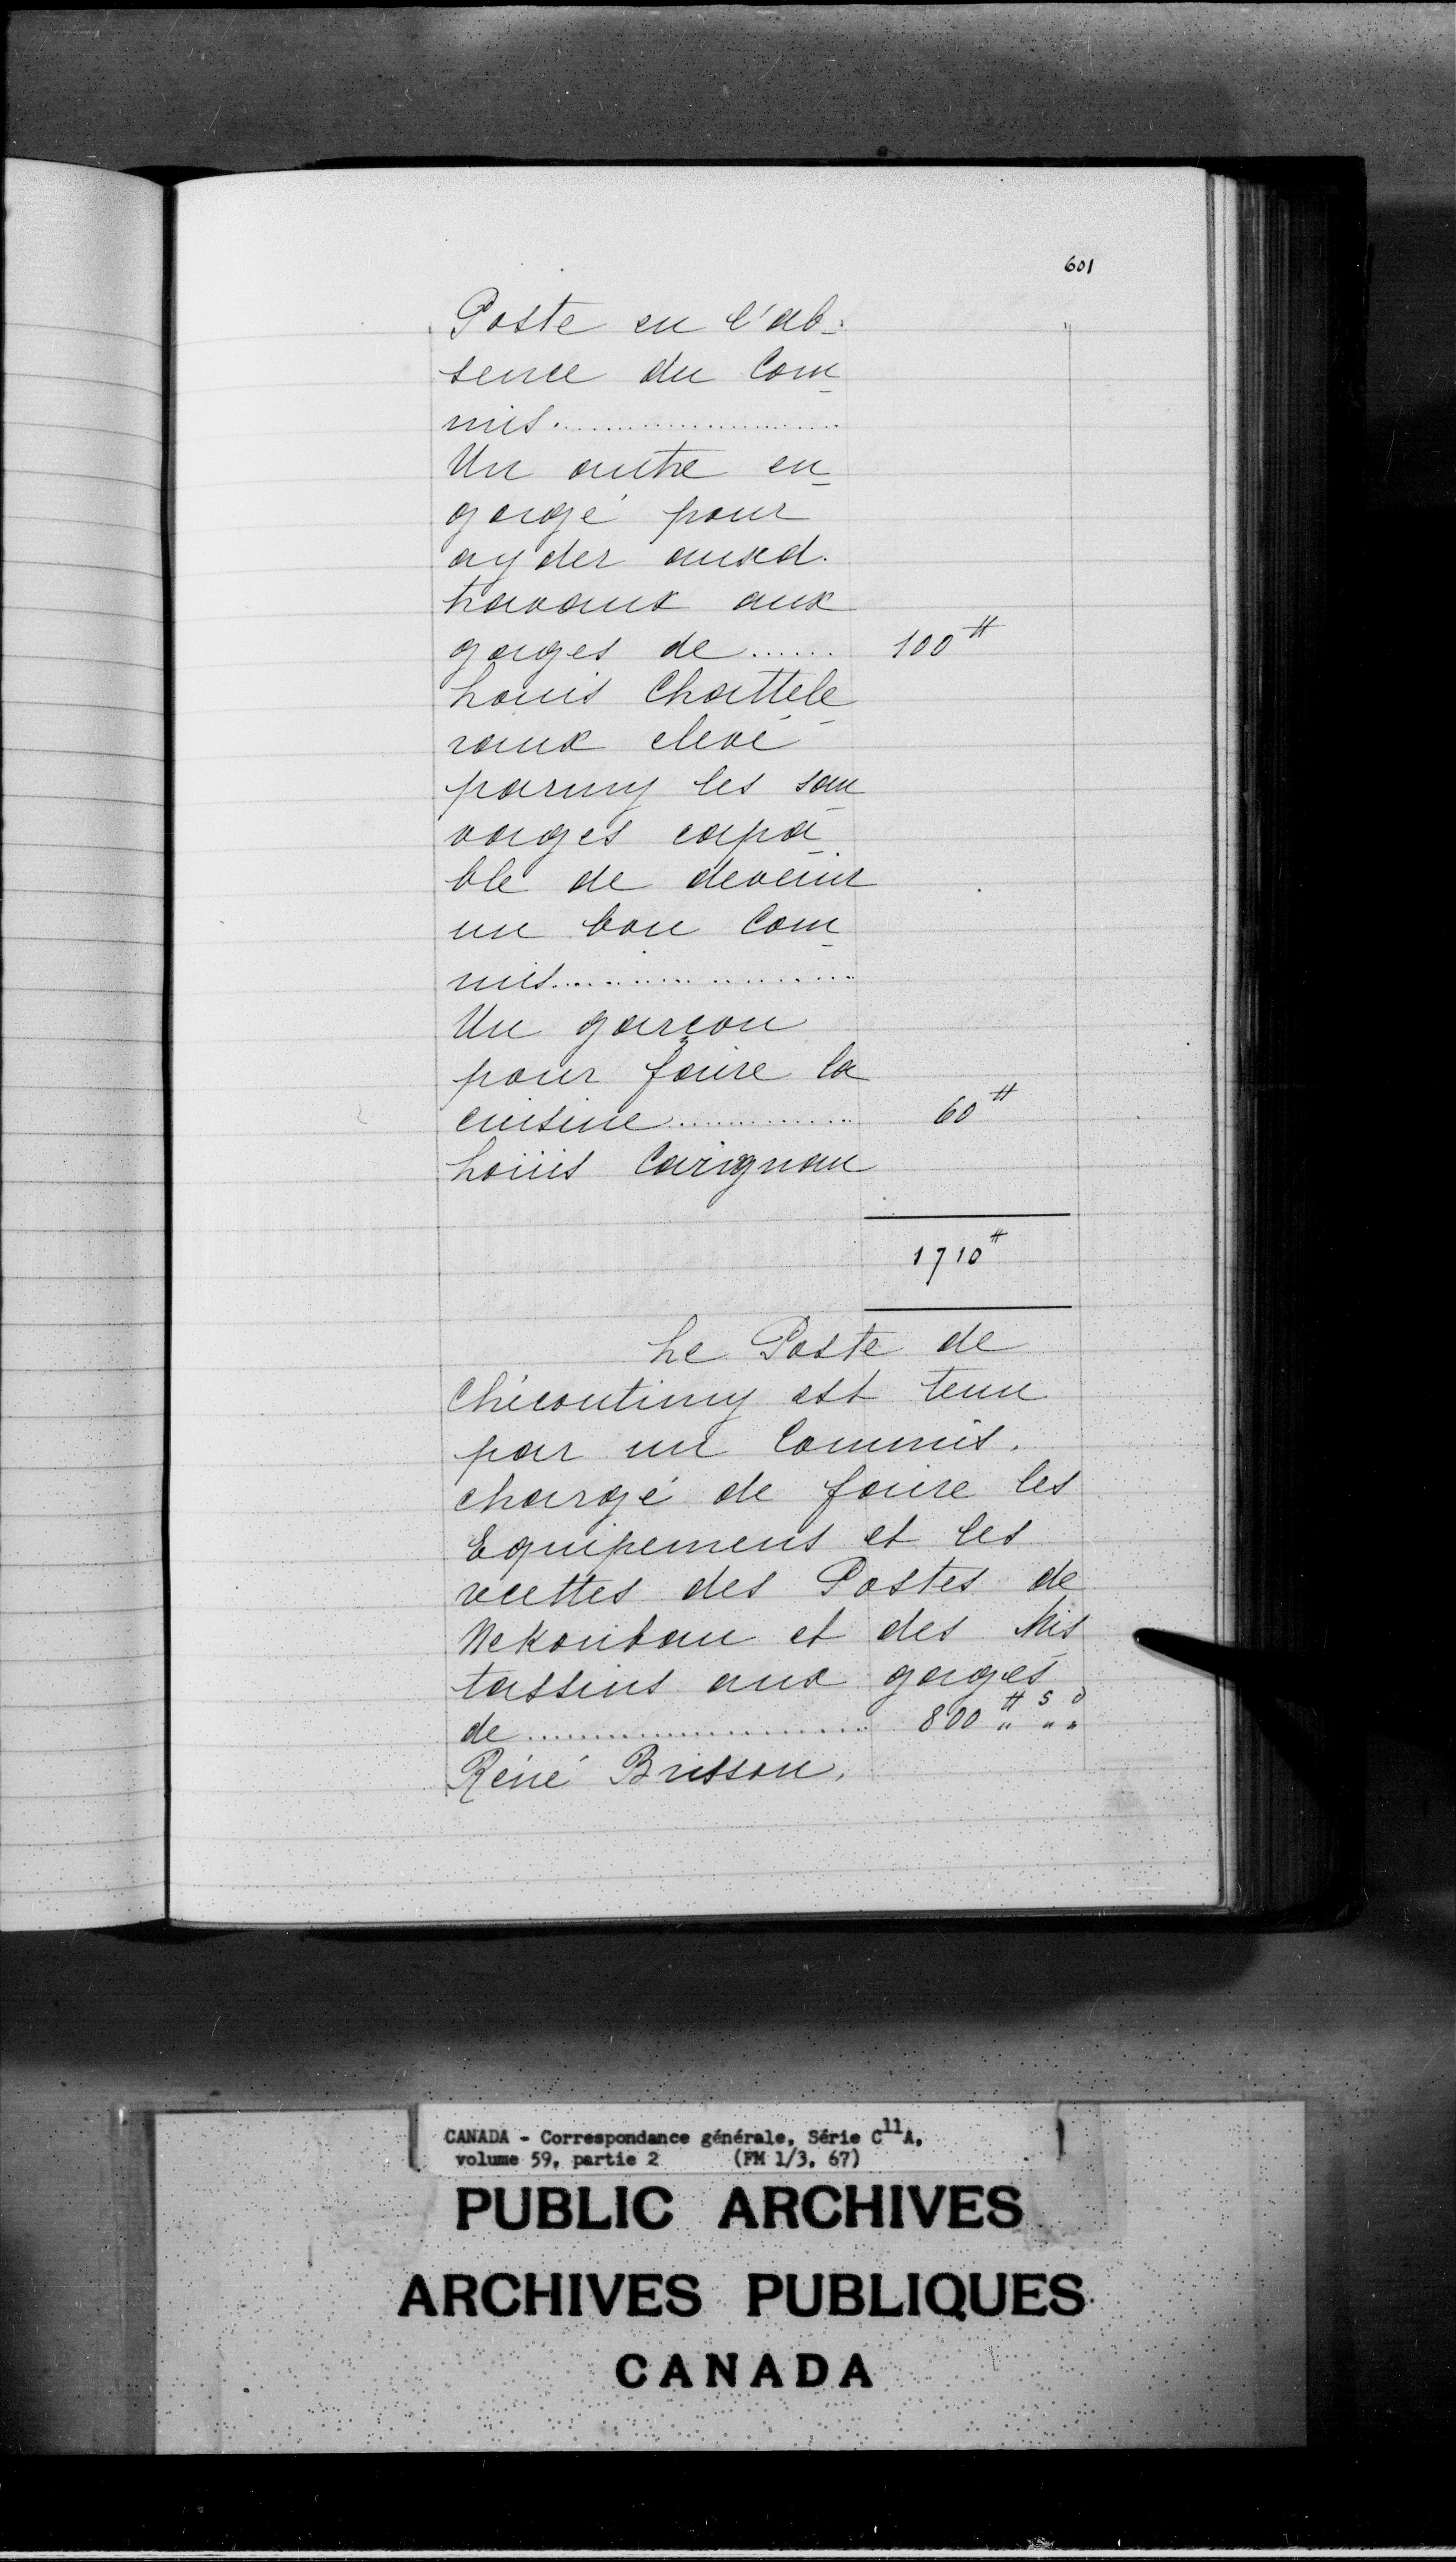 601
Poste en l'ab-
sence du Com
mis.....................
Un autre en
gagé pour
ayder auxd.
travaux aux
gages de...... 100#
Louis Chattele
raux elevé
parmy les sau
vages capa
ble de devenir
un bon Com
mis.....................
Un garçon
pour faire la
cuisine.............. 60#
Loüis Carignan
1710#
Le Poste de
Chécoutimy est tenu
par un Commis.
chargé de faire les
Equipemens et les
recettes des Postes de
Nekoubau et des Mis
tassins aux gages
de........................ 800 # s d
" " "
Réné Brisson.
CANADA - Correspondance générale, Série C11A,
volume 59, partie 2 (FM 1/3, 67)
PUBLIC ARCHIVES
ARCHIVES PUBLIQUES
CANADA